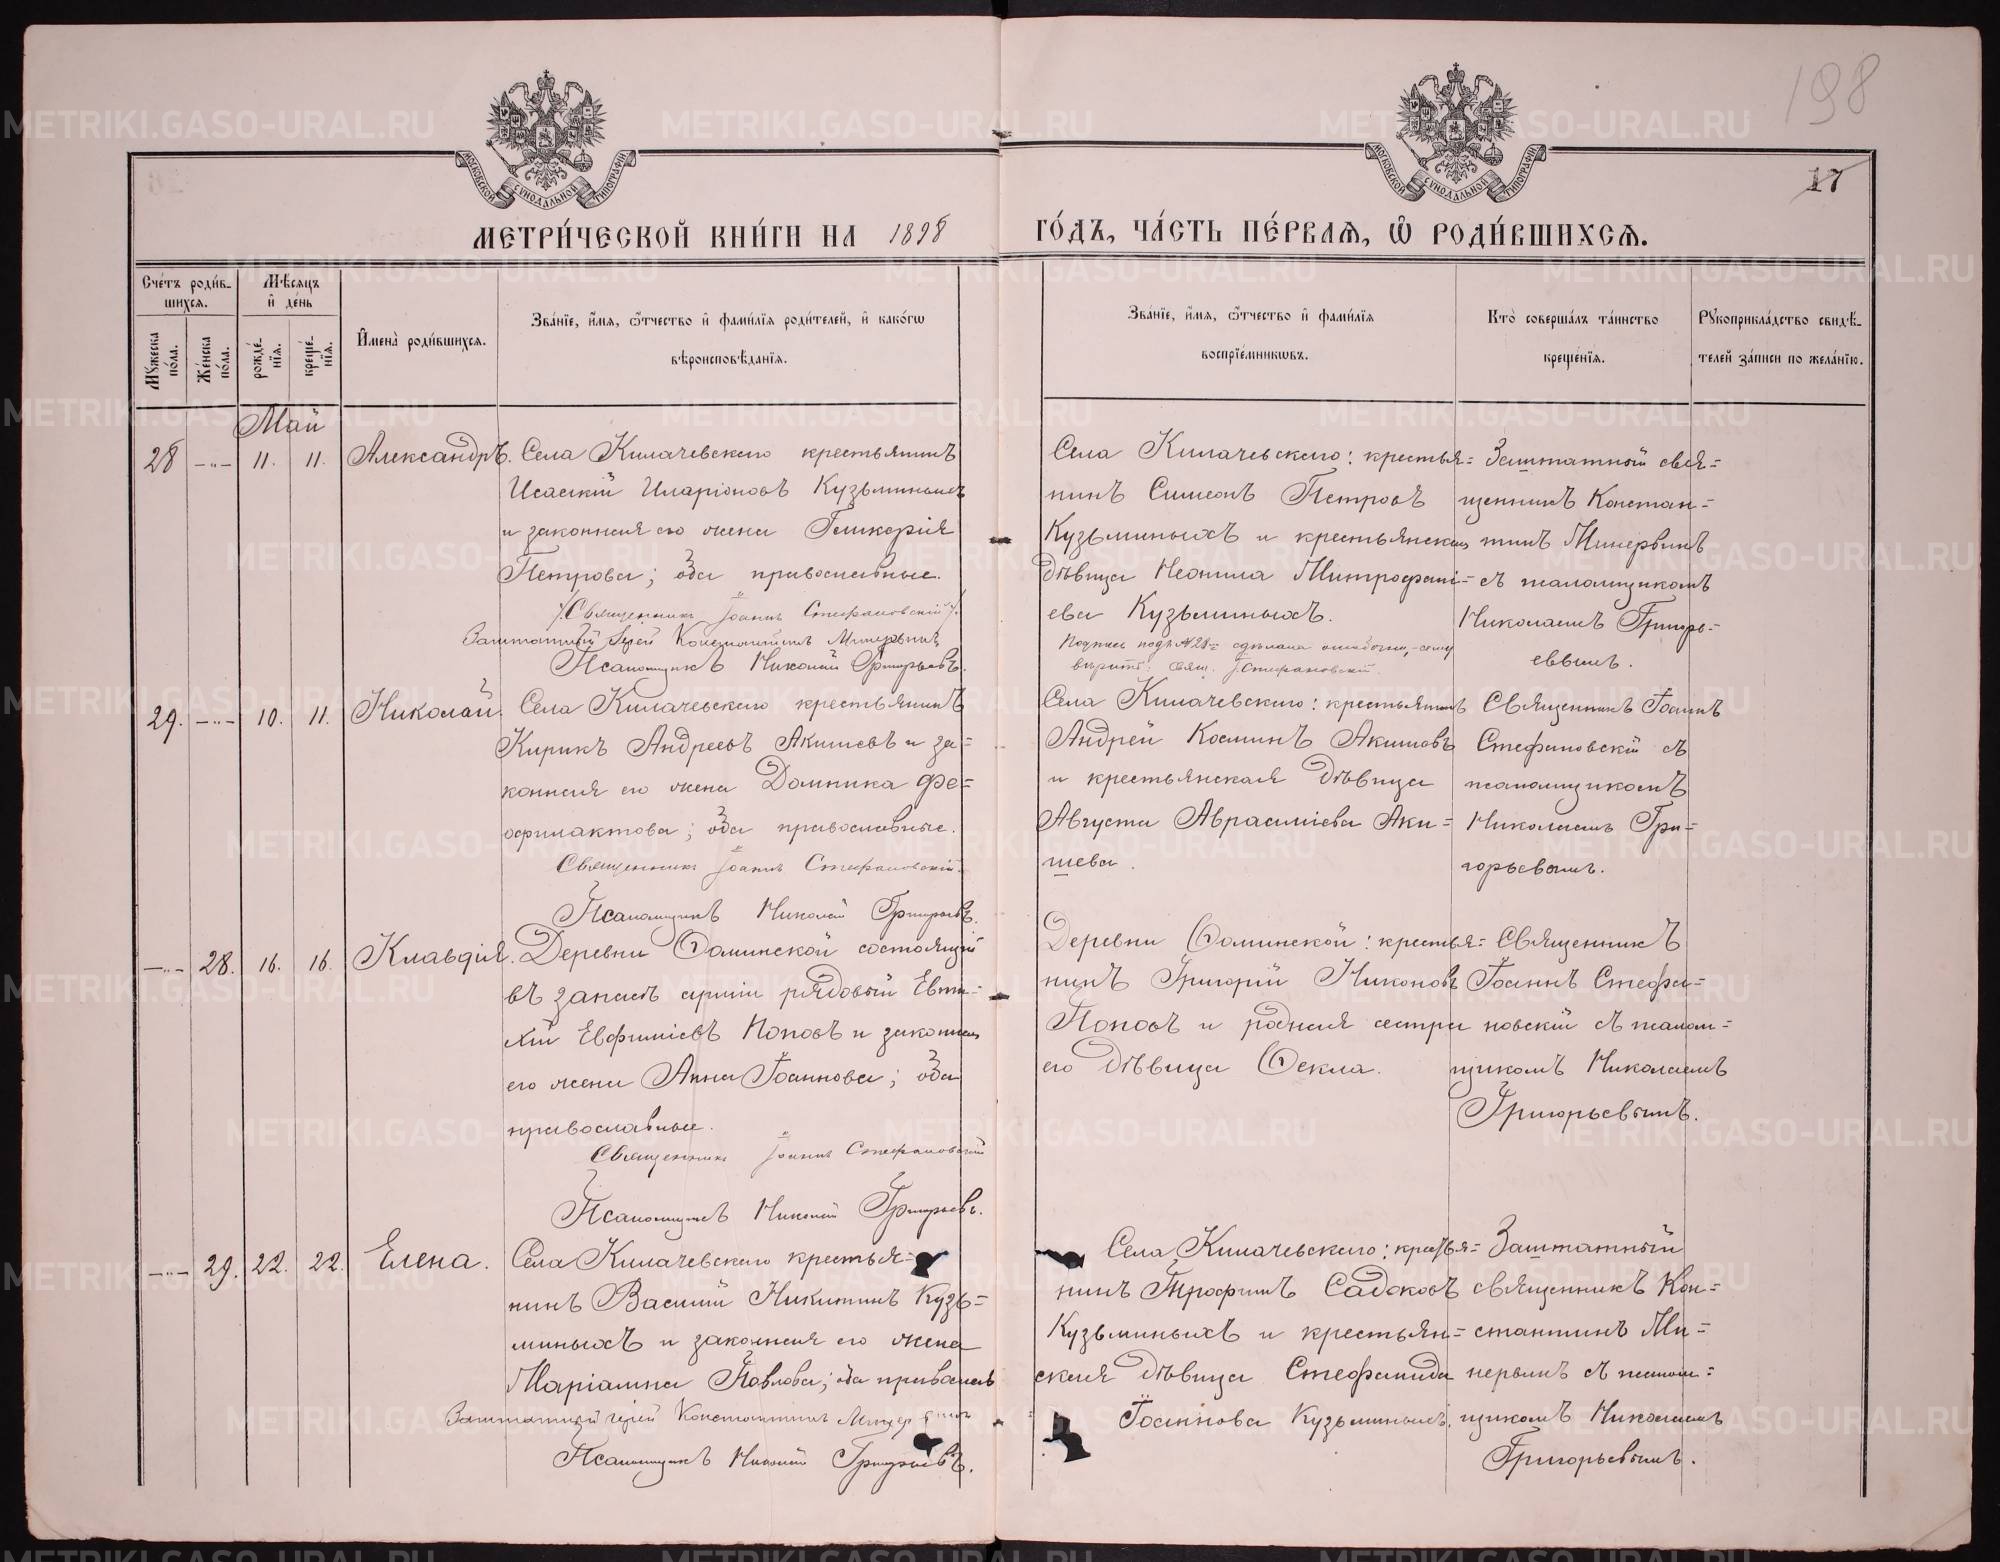 198
17
МОСКОВСКОЙ СУНОДАЛЬНОЙ ТИПОГРАФИИ
МОСКОВСКОЙ СУНОДАЛЬНОЙ ТИПОГРАФИИ
МЕТРИ́ЧЕСКОЙ КНИ́ГИ НА 1898 ГО́ДЪ, ЧА́СТЬ ПЕ́РВАѦ, Ѡ҆ РОДИ́ВШИХСѦ.
Сче́тъ роди́в-
шихсѧ.
Мꙋжеска по́ла.
Же́нска по́ла.
Мѣ́сѧцъ
и҆ де́нь
рожде́нїѧ.
креще́нїѧ.
И҆мена̀ роди́вшихсѧ.
Зва́нїе, и҆́мѧ, ѻ҆́тчество и҆ фами́лїѧ роди́телей, и҆ како́гѡ
вѣроисповѣ́данїѧ.
Зва́нїе, и҆́мѧ, ѻ҆́тчество и҆ фами́лїѧ
воспрїе́мникѡвъ.
Кто̀ соверша́лъ та́инство
креще́нїѧ.
Рꙋкоприкла́дство свидѣ́-
телей за́писи по жела́нїю.
Май
28 —"— 11. 11. Александръ.
Села Килачевскаго крестьянинъ
Исаакій Иларіоновъ Кузьминыхъ
и законная его жена Гликерія
Петрова; оба православные.
/Священникъ Іоаннъ Стефановскій/.
Заштатный Іерей Константинъ Минервинъ
Псаломщикъ Николай Григорьевъ.
Села Килачевскаго: крестья=
нинъ Симеонъ Петровъ
Кузьминыхъ и крестьянская
дѣвица Неонила Митрофані=
ева Кузьминыхъ.
Подпись подъ №28= сдѣлана ошибочно, - сему
вѣрить: свящ. І. Стефановскій.
Заштатный свя=
щенникъ Констан=
тинъ Минервинъ
съ псаломщикомъ
Николаемъ Григорь=
евымъ.
29. —"— 10. 11. Николай.
Села Килачевскаго крестьянинъ
Кирикъ Андреевъ Акишевъ и за=
конная его жена Домника Фе=
офилактова; оба православные.
Священникъ Іоаннъ Стефановскій.
Псаломщикъ Николай Григорьевъ.
Села Килачевскаго: крестьянинъ
Андрей Косминъ Акишовъ
и крестьянская дѣвица
Августа Аврааміева Аки=
шева.
Священникъ Іоаннъ
Стефановскій съ
псаломщикомъ
Николаемъ Гри=
горьевымъ.
—"— 28. 16. 16. Клавдія.
Деревни Ѳоминской состоящій
въ запасѣ арміи рядовой Евти=
хій Евфиміевъ Поповъ и законная
его жена Анна Іоаннова; оба
православные.
Священникъ Іоаннъ Стефановскій
Псаломщикъ Николай Григорьевъ.
Деревни Ѳоминской: крестья=
нинъ Григорій Никоновъ
Поповъ и родная сестра
его дѣвица Ѳекла.
Священникъ
Іоаннъ Стефа=
новскій съ псалом=
щикомъ Николаемъ
Григорьевымъ.
—"— 29. 22. 22. Елена.
Села Килачевскаго крестья=
нинъ Василій Никитинъ Кузь=
миныхъ и законная его жена
Маріамна Павлова; оба православ
Заштатный іерей Константинъ Минервинъ
Псаломщикъ Николай Григорьевъ.
Села Килачевскаго: крестья=
нинъ Трофимъ Садоковъ
Кузьминыхъ и крестьян=
ская дѣвица Стефанида
Іоаннова Кузьминыхъ.
Заштатный
священникъ Кон=
стантинъ Ми=
нервинъ съ псалом=
щикомъ Николаемъ
Григорьевымъ.
METRIKI.GASO-URAL.RU